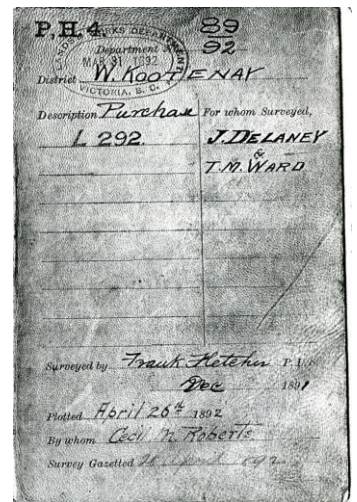 P.H.4. 89
92
LANDS & WORKS DEPARTMENT
Department
MAR 31 1892
VICTORIA, B.C.
District W. KOOTENAY
Description Purchase For whom Surveyed,
L 292. J. DELANEY
&
T.M. WARD
Surveyed by Frank Fletcher P.L.S.
Dec 1891
Plotted April 26th 1892
By whom Cecil M. Roberts
Survey Gazetted 28 April 1892